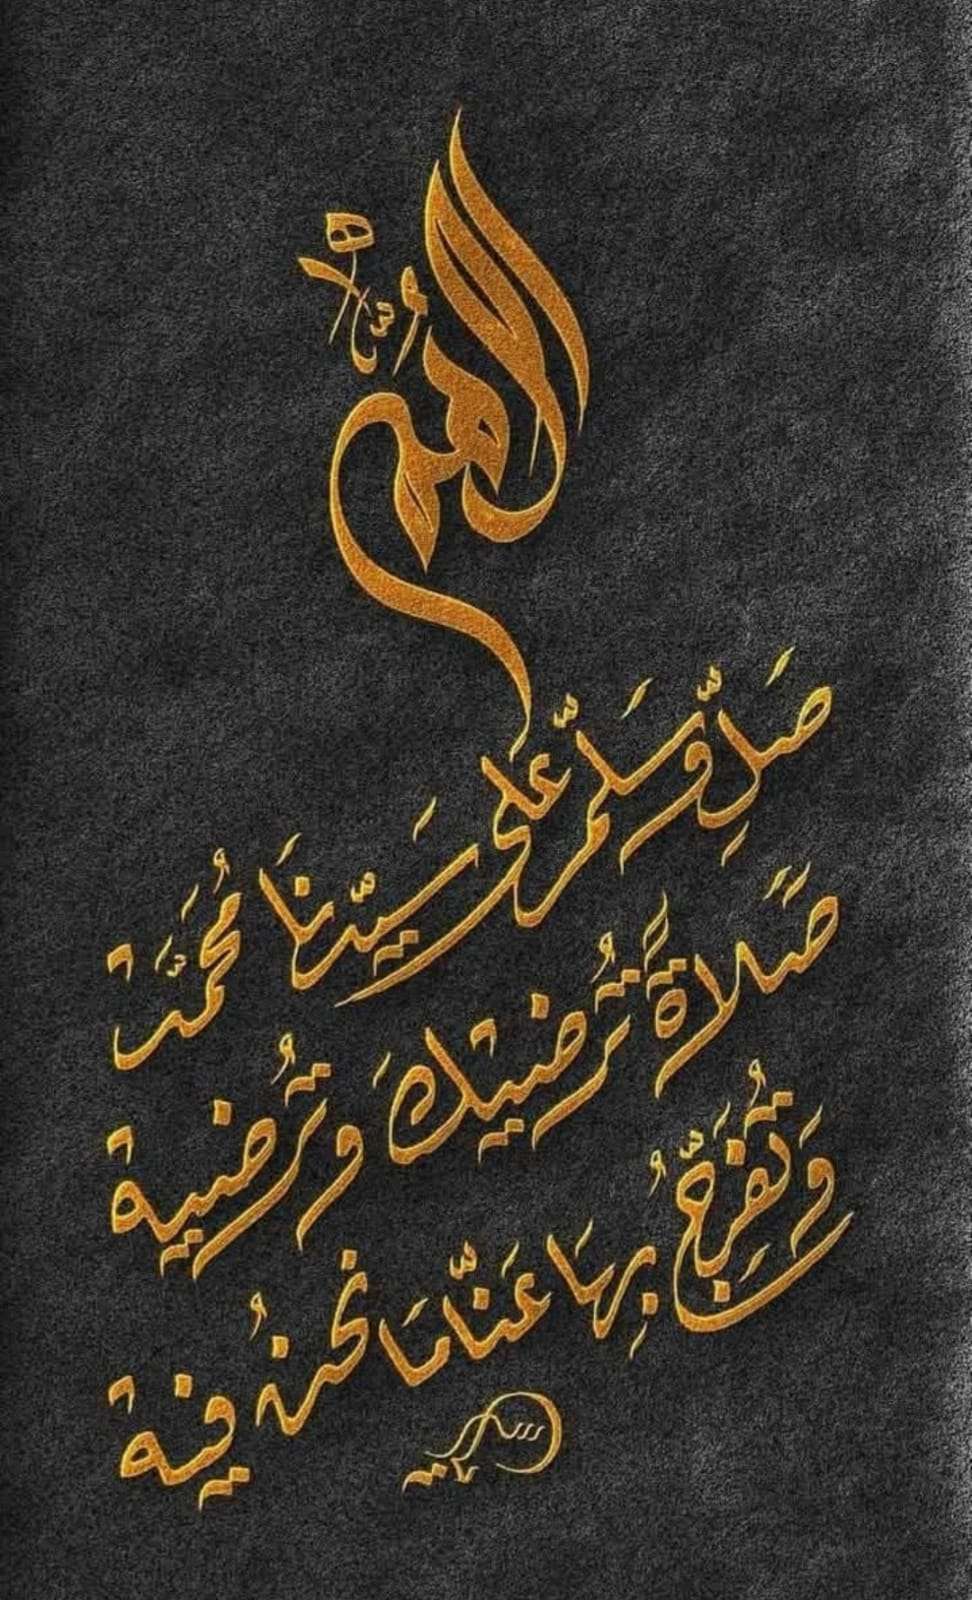 اللهم
صَلِّ وَسَلِّم عَلَى سَيِّدنَا مُحَمَّد
صَلاةً تُرضيكَ وتُرضية
وَتُفَرِّجُ بِهَا عَنَّا مَا نحنُ فية